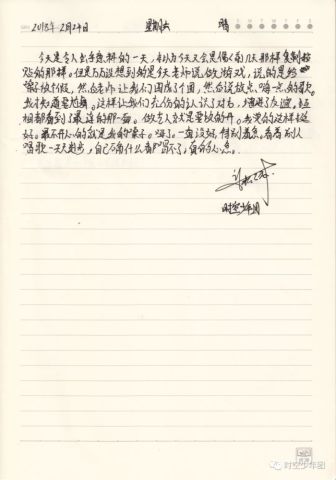 2018年2月24日 星期六 晴
今天是令人出乎意料的一天,本以为今天又会是像前几天那样复制粘
贴的那样。但是万万没想到的是今天老师说做游戏,说的是给
不放假,然后老师让我们围成了个圈,然后说缺点、嗨一点的歌。
我们大声唱。这样让我们充分的认识了对方,增进了友谊,互
相都看到了最真的那一面。做艺人就是要放的开。我觉的这样挺
好。最不开心的就是我的嗓子。嗨了一直没好,特别着急,看着别人
唱歌一天天进步,自己有什么都唱不了,真的好心急。
时空少年团
时空少年团